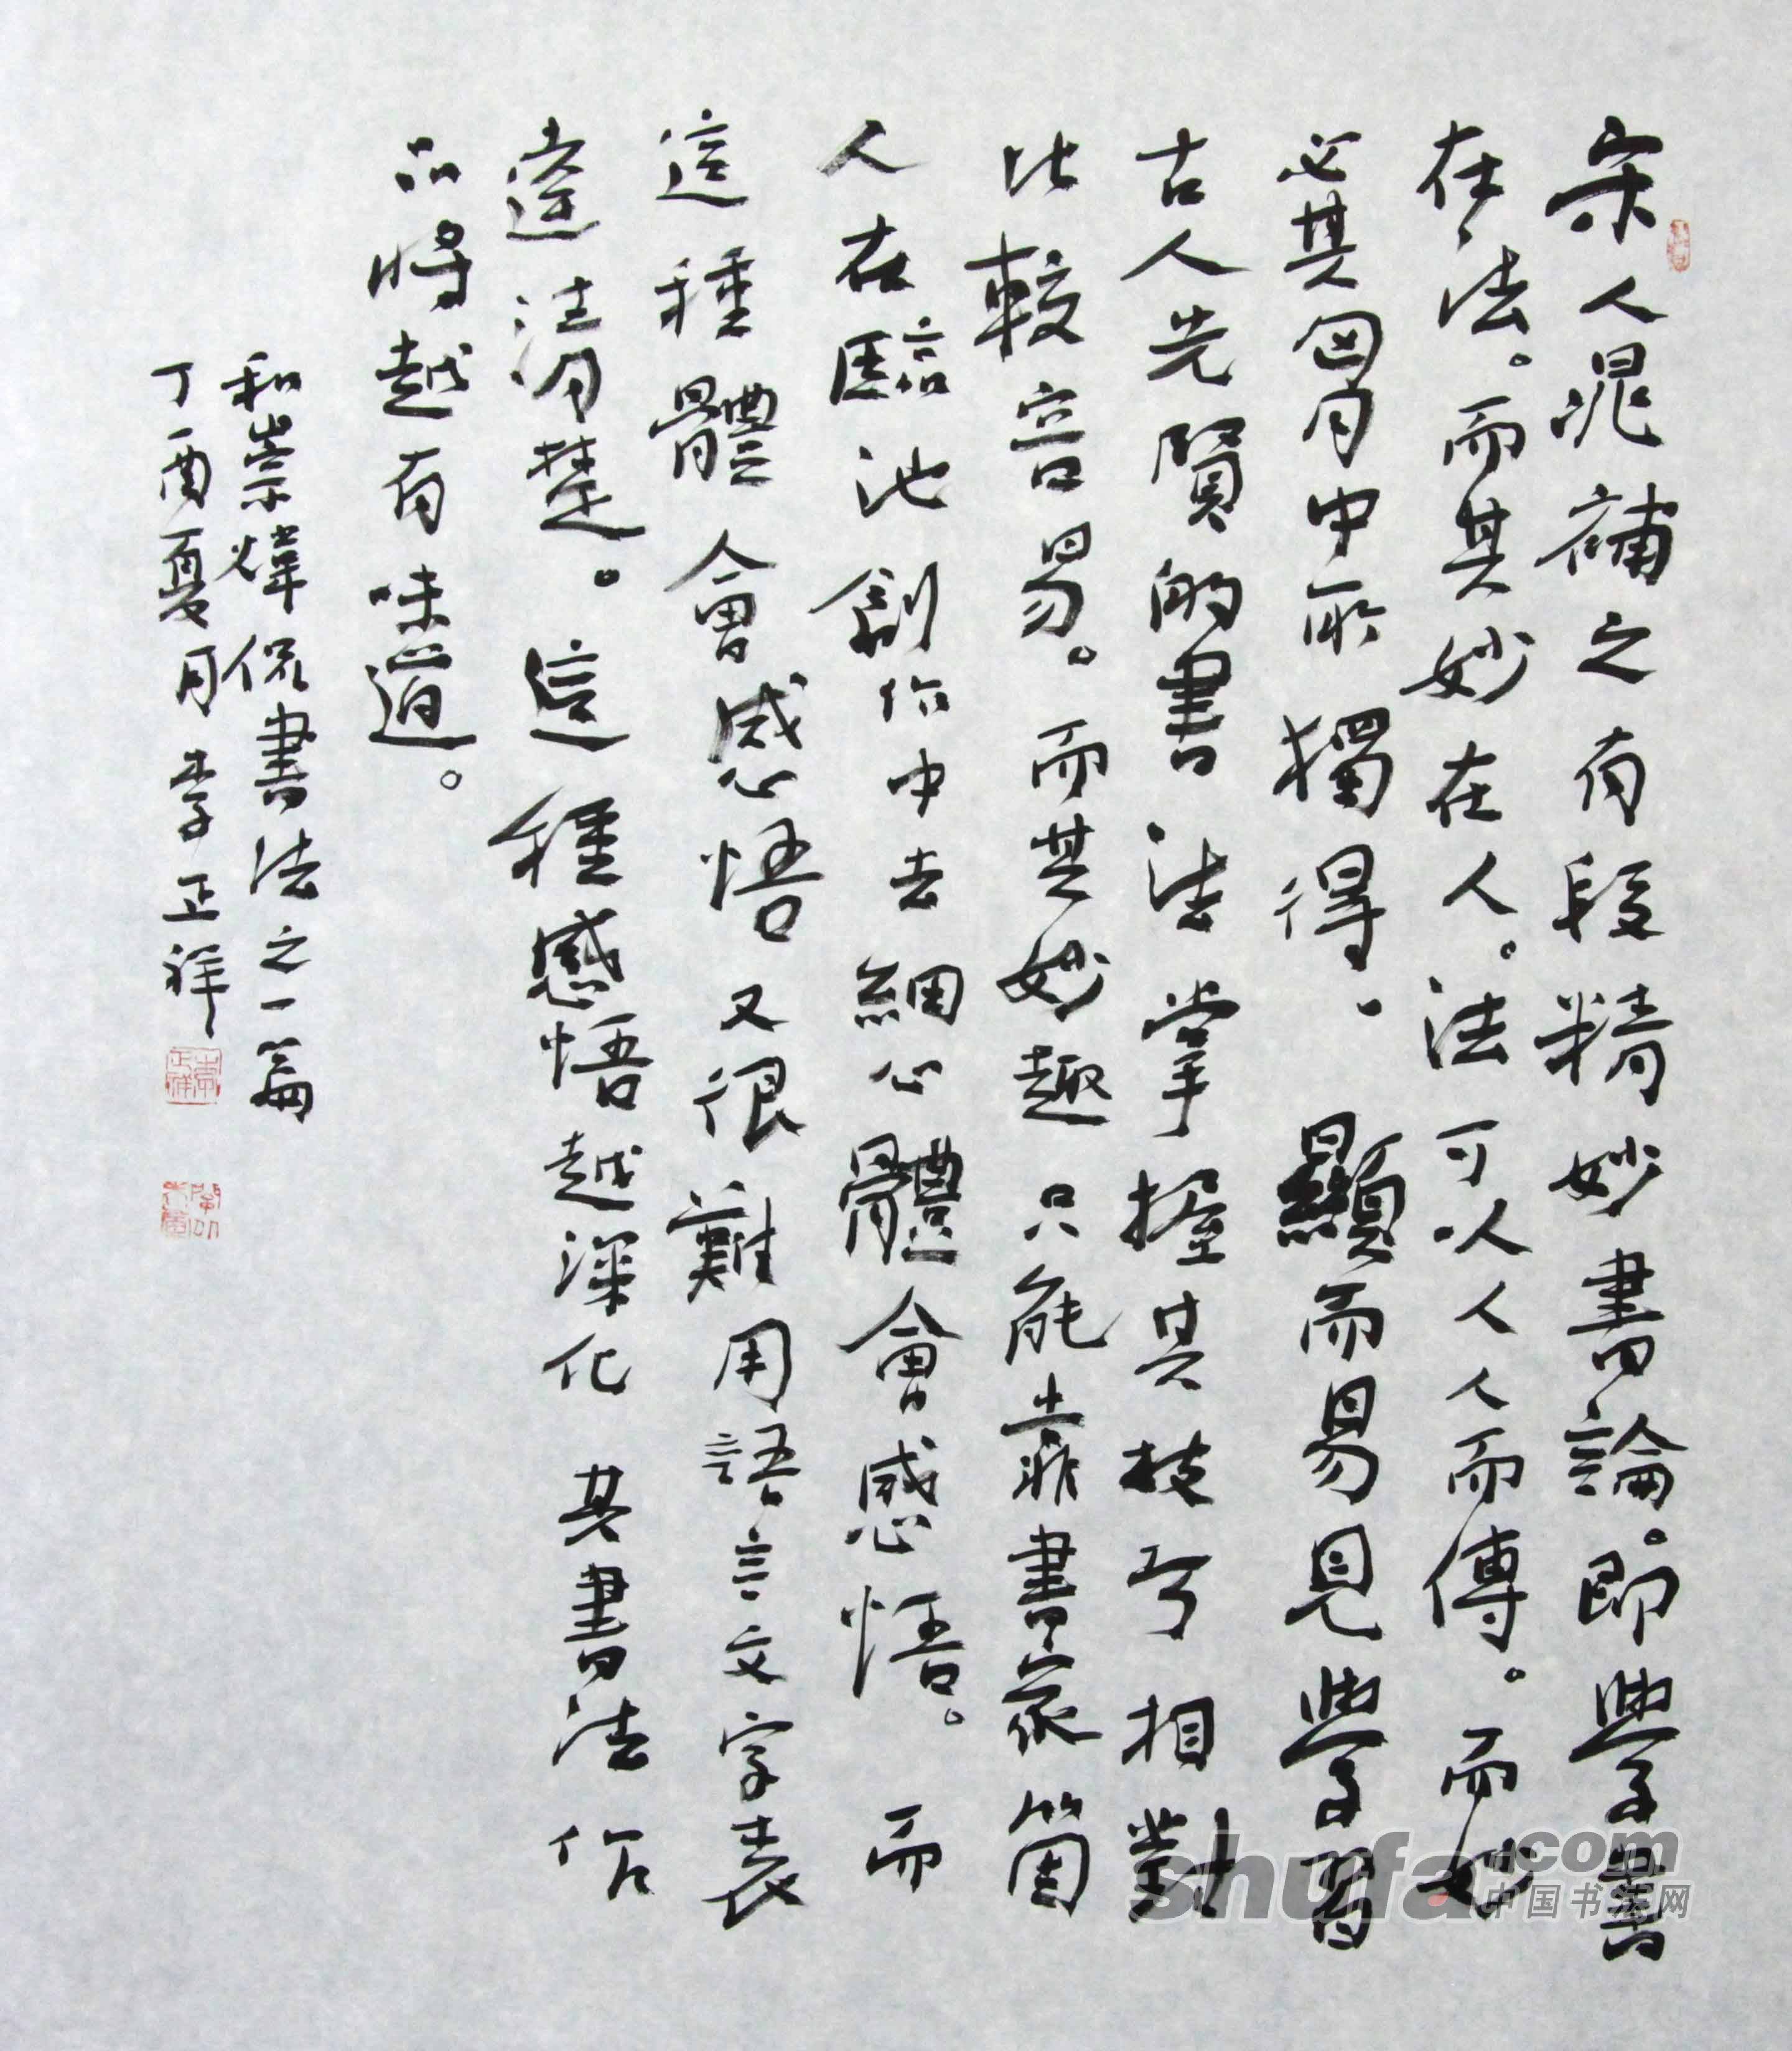 宋人晁補之有段精妙書論。即學書
在法。而其妙在人。法可以人人而傳。而妙
必其胸中所獨得。顯而易見學習
古人先賢的書法掌握其技巧相對
比較容易。而其妙趣只能靠書家箇
人在臨池創作中去細心體會感悟。而
這種體會感悟又很難用語言文字表
達清楚。這種感悟越深化其書法作
品將越有味道。
和崇煒侃書法之一篇
丁酉夏月李正祥
shufa.com
中国书法网